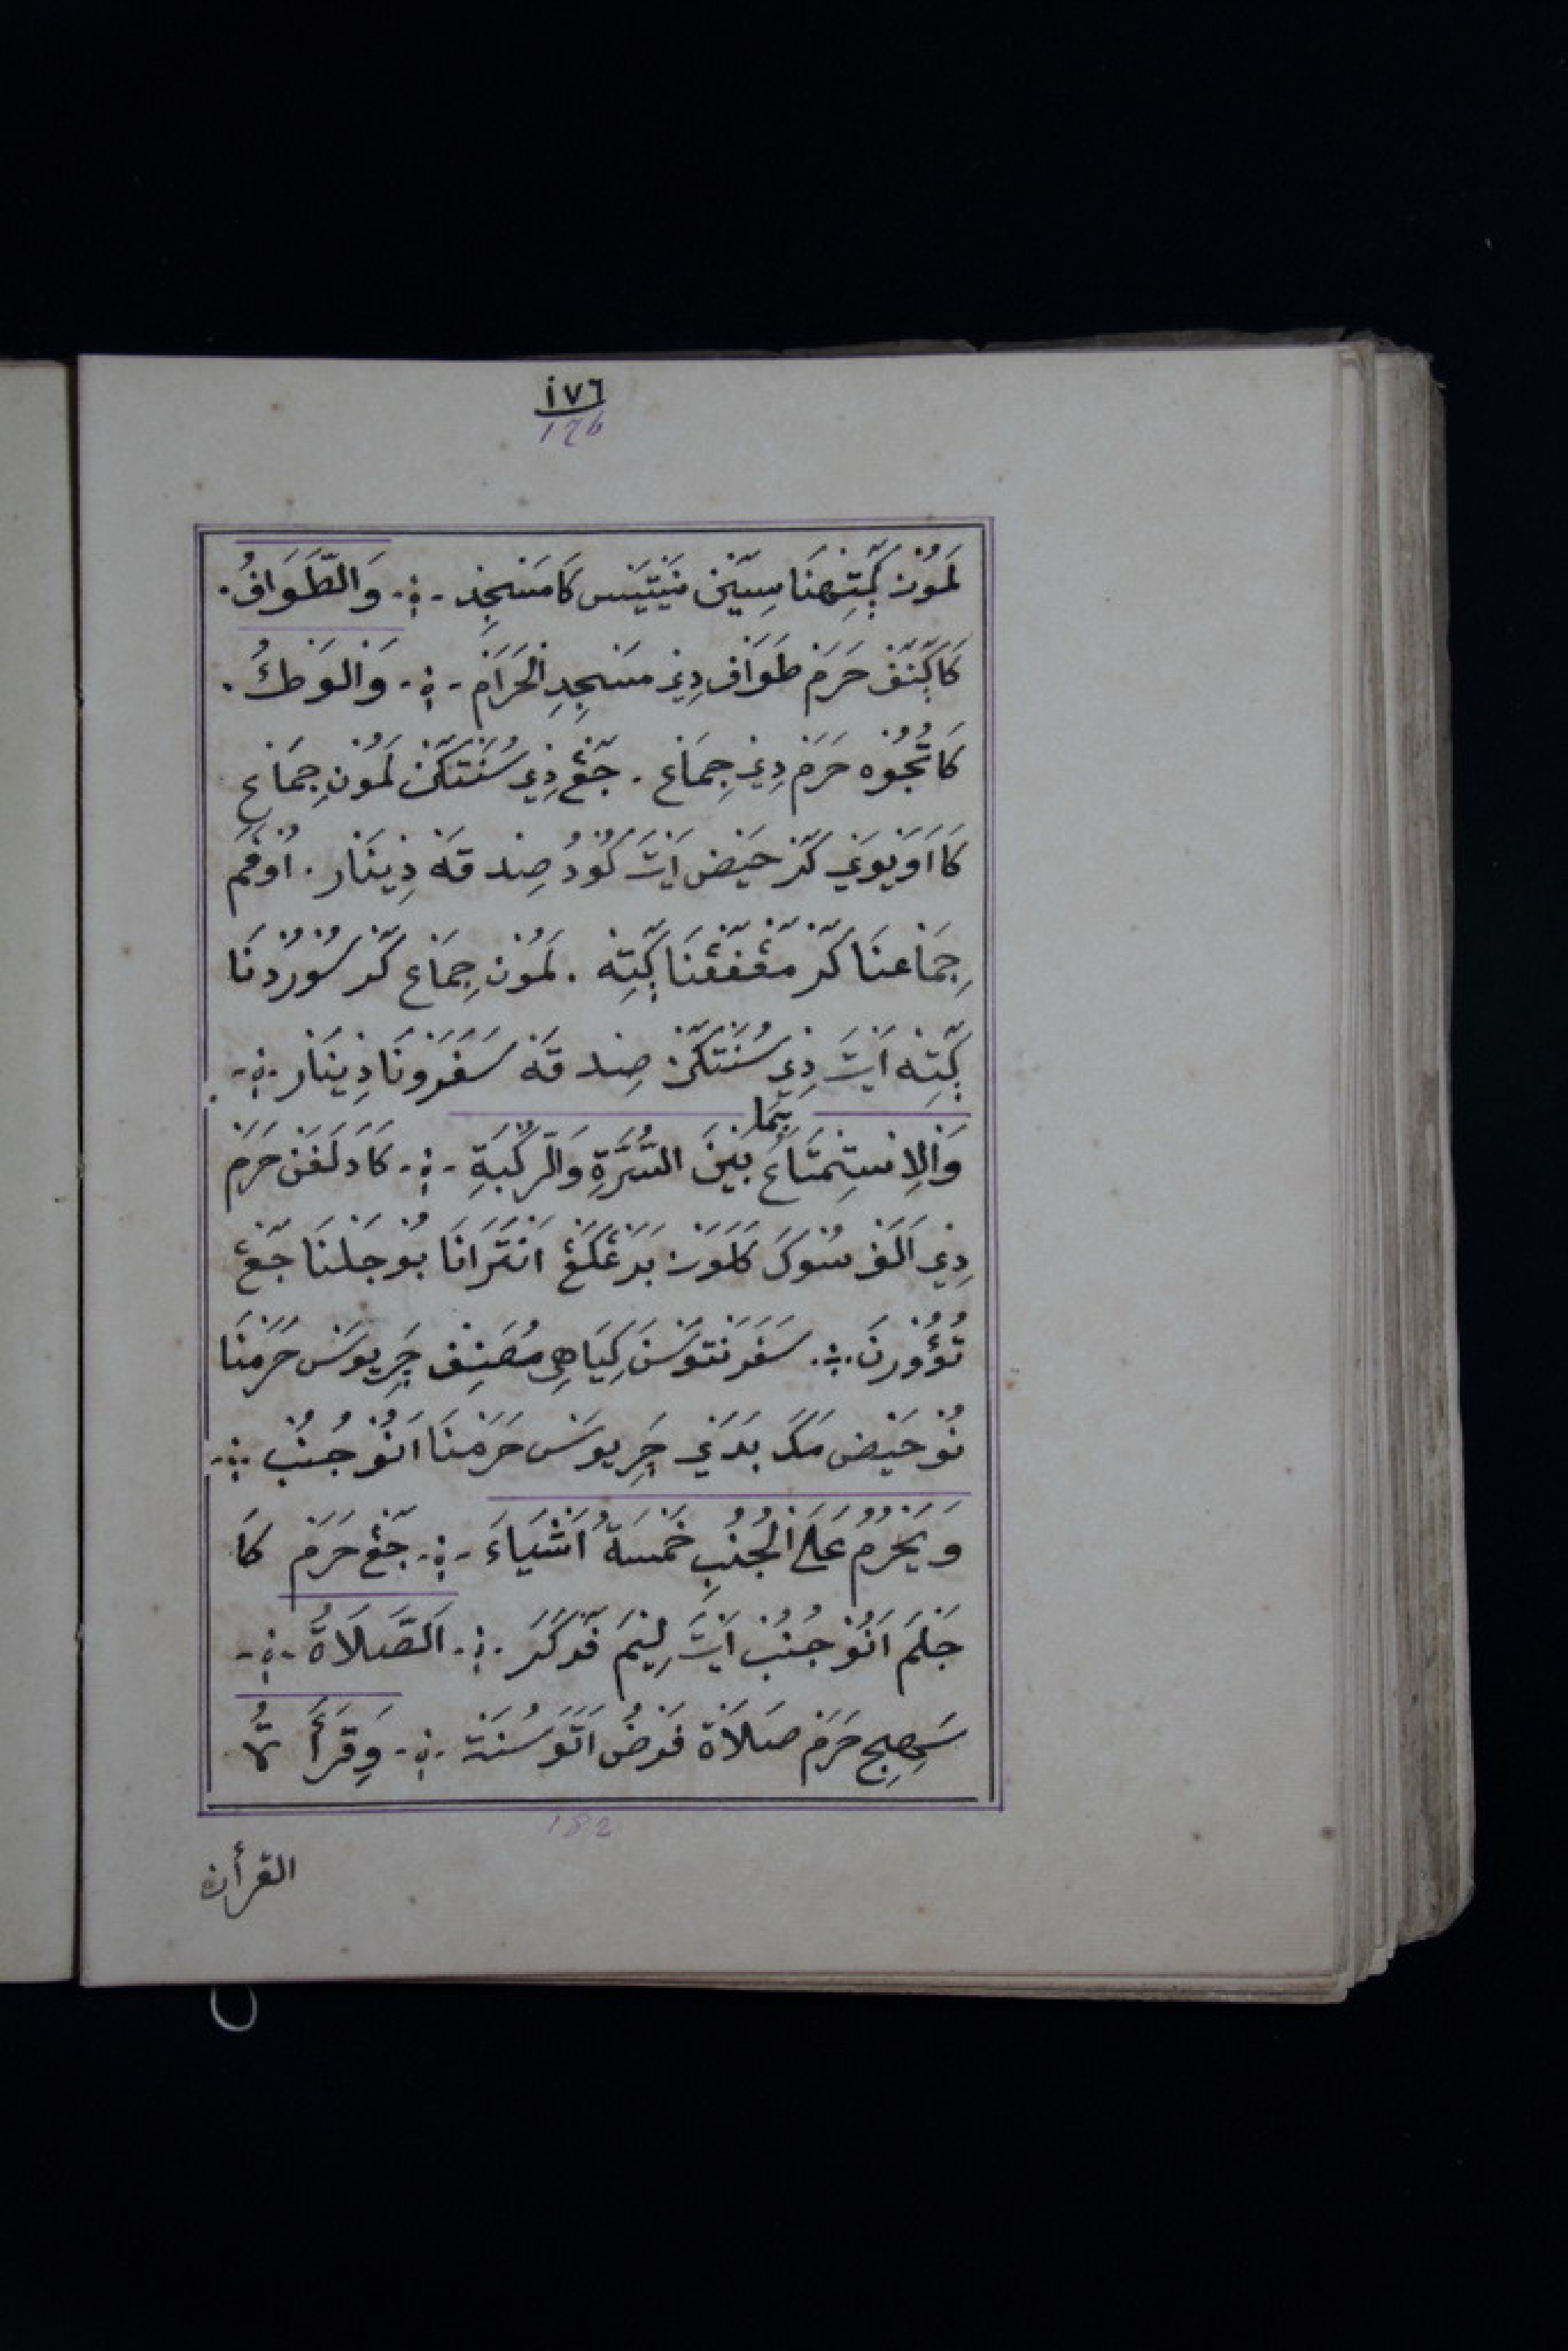 ١٧٦
176
لَمَوْنْ كِّتِهْنَا سِيَّخْ مِنَيْتَيْسْ كَا مَسْجِدْ . وَالطَّوَافُ.
كَاكِّنَفْ حَرَمْ طَوَافْ دِيْ مَسْجِدِ الْحَرَامْ . وَالْوَطْءُ.
كَاتُجُوْهْ حَرَمْ دِيْ جِمَاعْ . جَڠْ دِيْ سُنَتَكَّنْ لَمَوْنْ جِمَاعْ
كَا اَوَيْوَيْ كَّرْ حَيْضْ اَيْتَ كُوْدُ صِدْقَهْ دِيْنَارْ . اُوْفَمَ
جِمَاعْنَا كَّرْ مَڠْفَڠْنَا كِّتِهْ . لَمَوْنْ جِمَاعْ كَّرْ سُوْرُدْنَا
كِّتِهْ اَيْتَ دِيْ سُنَتَكَّنْ صِدْقَهْ سَفَرَوْنَا دِيْنَارْ
وَالْاِسْتِمْتَاعُ بِمَا بَيْنَ السُّرَّةِ وَالرُّكْبَةِ . كَا دَلَفَنْ حَرَمْ
دِيْ اَلَفْ سُوْكَ كَلَوَنْ بَرَڠْكَڠْ اَنْتَرَانَا بُوْجَلْنَا جَڠْ
تُوْؤُرْنَ . سَفَرَنْتَوْسَنْ كِيَاهِيْ مُصَنِفْ چَرِيْوَسْ حَرَمْنَا
نُوْ حَيْضْ مَكَ بَدَيْ چَرِيْوَسْ حَرَمْنَا اَنُوْ جُنُبْ
وَيَحْرُمُ عَلَى الْجُنُبِ خَمْسَةُ اَشْيَاءَ . جَڠْ حَرَمْ كَا
جَلْمَ اَنُوْ جُنُبْ اَيْتَ لِيْمَ فَرْكَرَ . اَلصَّلَاةُ
سَهِجِ حَرَمْ صَلَاةْ فَرْضُ اَتَوَ سُنَةْ . وَقِرَأَةُ
182
القرأن